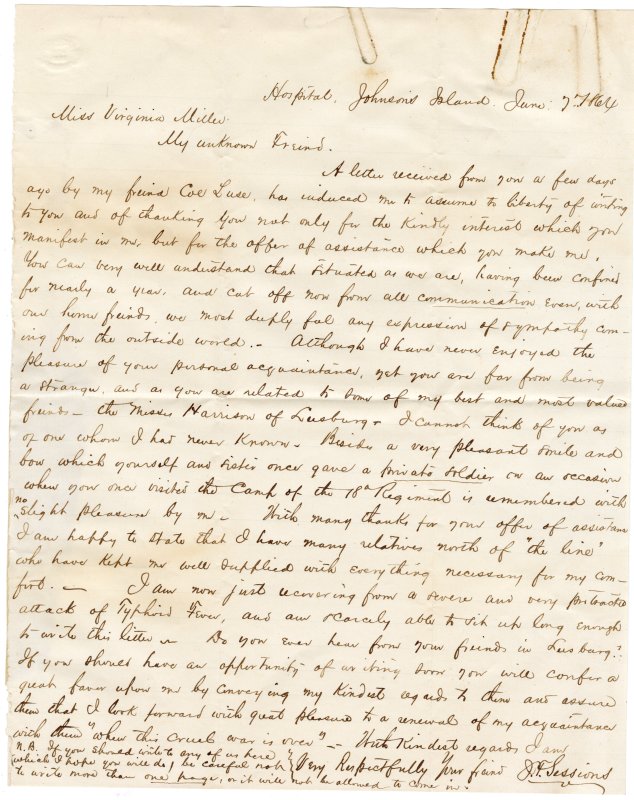 Hospital, Johnson's Island. June, 7th 1864
Miss Virginia Miller.
My unknown Freind.
A letter received from you a few days
ago by my freind Col Luse, has induced me to assume to liberty of writing
to you and of thanking you not only for the Kindly interest which you
manifest in me, but for the offer of assistance which you make me.
You can very well understand that situated as we are, having been confined
for nearly a year, and cut off now from all communication even, with
our home freinds, we most deeply feel any expression of sympathy com-
ing from the outside world. - Although I have never enjoyed the
pleasure of your personal acquaintance, yet you are far from being
a stranger, and as you are related to some of my best and most valued
freinds - the Misses Harrison of Leesburg - I cannot think of you as
of one whom I had never Known - Besides a very pleasant smile and
bow which yourself and sister once gave a private soldier on an occasion
when you once visited the Camp of the 18th Regiment is remembered with
no slight pleasure by me - With many thanks for your offer of assistance
I am happy to state that I have many relatives north of "the line"
who have Kept me well supplied with everything necessary for my com-
fort. - I am now just recovering from a severe and very protracted
attack of Typhoid Fever, and am scarcely able to sit up long enough
to write this letter - Do you ever hear from your freinds in Leesburg?
If you should have an opportunity of writing soon you will confer a
great favor upon me by conveying my Kindest regards to them and assure
them that I look forward with great pleasure to a renewal of my acquaintance
with them "when this cruel war is over" - With Kindest regards I am
Very Respectfully Your freind J.F. Sessions
N.B. If you should write to any of us here
(which I hope you will do,) be careful not
to write more than one page, or it will not be allowed to come in.